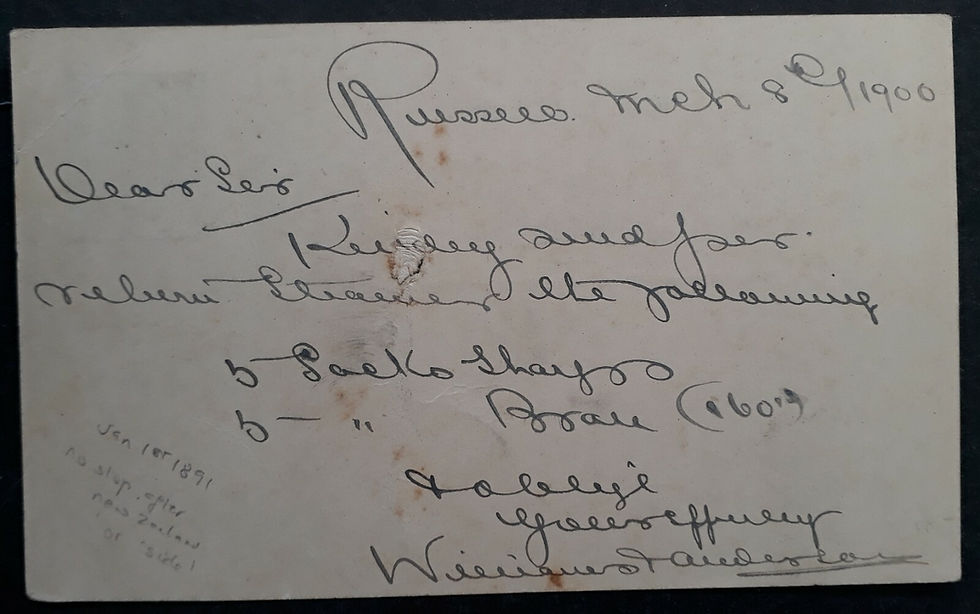 Russell. Mch 8th/1900
Dear Sir
Kindly send per
return Steamer the following
5 Sacks Sharps
5 - " Bran (160's)
& oblige
Yours ffully
Williams & Anderson
Jan 1st 1891
no stop after
new Zealand
or 'side'